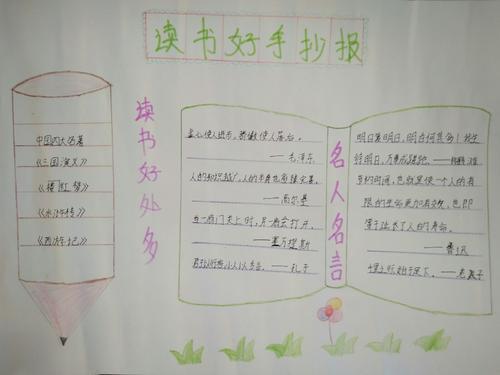 读书好手抄报
中国四大名著
《三国演义》
《楼红梦》
《水浒传》
《西游记》
读书好处多
虚心使人进步,骄傲使人落后。
——毛泽东
人的知识越广,人的本身也愈臻完善。
——高尔基
当一扇门关上时,另一扇会打开。
——塞万提斯
君子以行言,小人以舌言。——孔子
名人名言
明日复明日,明日何其多!我生
待明日,万事成蹉跎。——钱鹤滩
节约时间,也就是使一个人的有
限的生命更加有效,也即
等于延长了人的寿命。
——鲁迅
千里之行始于足下。——